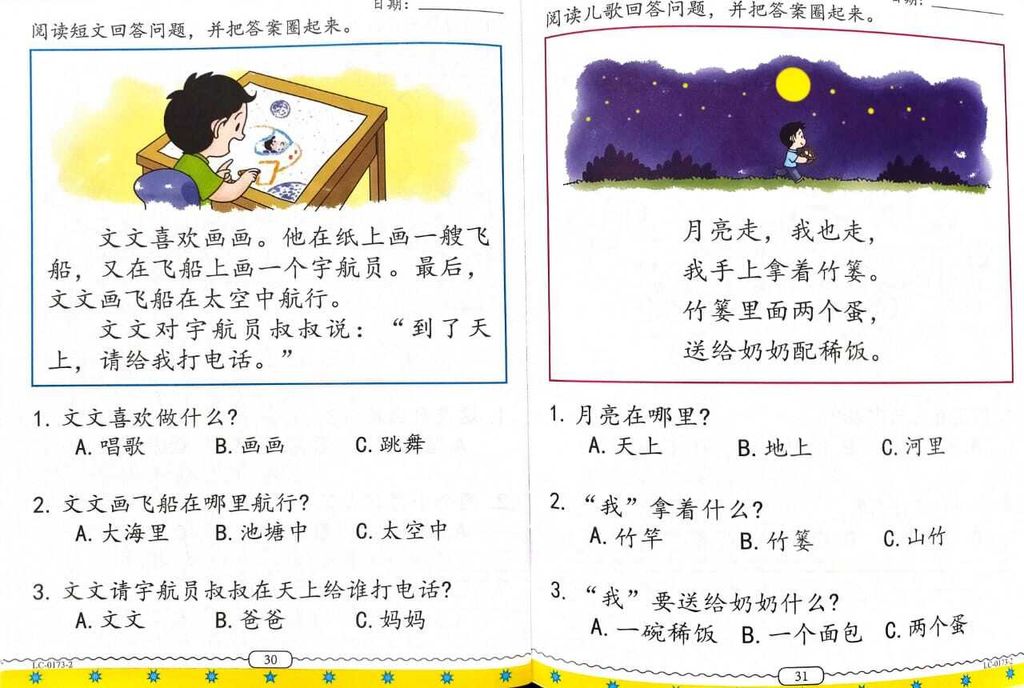 日期：
阅读短文回答问题，并把答案圈起来。
文文喜欢画画。他在纸上画一艘飞
船，又在飞船上画一个宇航员。最后，
文文画飞船在太空中航行。
文文对宇航员叔叔说：“到了天
上，请给我打电话。”
1. 文文喜欢做什么?
A. 唱歌 B. 画画 C. 跳舞
2. 文文画飞船在哪里航行?
A. 大海里 B. 池塘中 C. 太空中
3. 文文请宇航员叔叔在天上给谁打电话?
A. 文文 B. 爸爸 C. 妈妈
LC-0173-2
30
阅读儿歌回答问题，并把答案圈起来。
月亮走，我也走，
我手上拿着竹篓。
竹篓里面两个蛋，
送给奶奶配稀饭。
1. 月亮在哪里?
A. 天上 B. 地上 C. 河里
2. “我”拿着什么?
A. 竹竿 B. 竹篓 C. 山竹
3. “我”要送给奶奶什么?
A. 一碗稀饭 B. 一个面包 C. 两个蛋
31
LC-0173-2